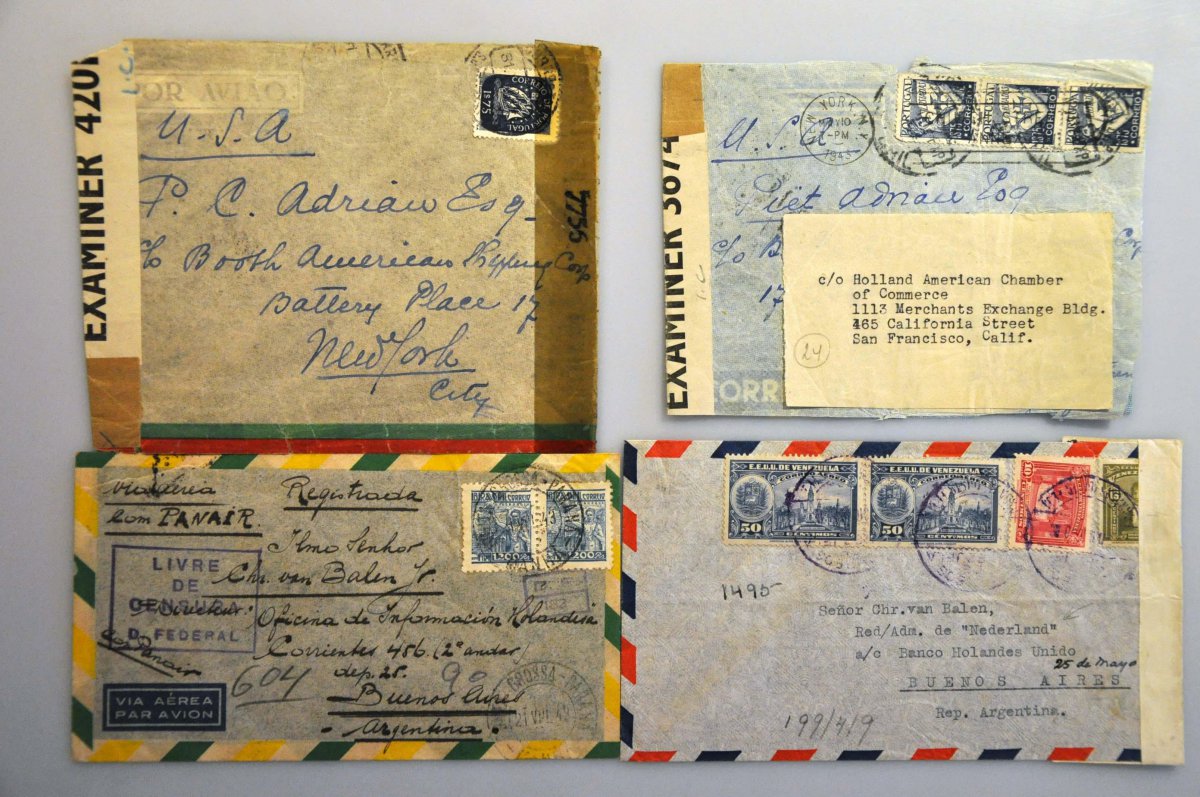 EXAMINER 420
POR AVIÃO
CORREIO
PORTUGAL
1$75
U.S.A
P. C. Adrian Esq.
c/o Booth American Shipping Corp
Battery Place 17
New York
City
7756
EXAMINER 3874
NEW YORK N.Y.
MAY 10
-PM
1943
PORTUGAL CORREIO
PORTUGAL CORREIO
PORTUGAL CORREIO
U.S.A
Piet Adrian Esq
c/o B
Corp
17
c/o Holland American Chamber
of Commerce
1113 Merchants Exchange Bldg.
465 California Street
San Francisco, Calif.
24
CORR
Via aérea
com PANAIR.
Registrada
CORREIO
1200
1200
LIVRE
DE
CENSURA
D. FEDERAL
Ilmo Senhor
Chr. van Balen Jr.
Directeur
Oficina de Información Holandesa
Corrientes 456 (2º andar)
dep. 25.
604
90
Buenos Aires
- Argentina. -
VIA AÉREA
PAR AVION
E.E.U.U. DE VENEZUELA
CORREO AEREO
50
E.E.U.U. DE VENEZUELA
CORREO AEREO
50
1495
Señor Chr.van Balen,
Red/Adm. de "Nederland"
a/c Banco Holandes Unido
25 de Mayo
BUENOS AIRES
Rep. Argentina.
199/4/9